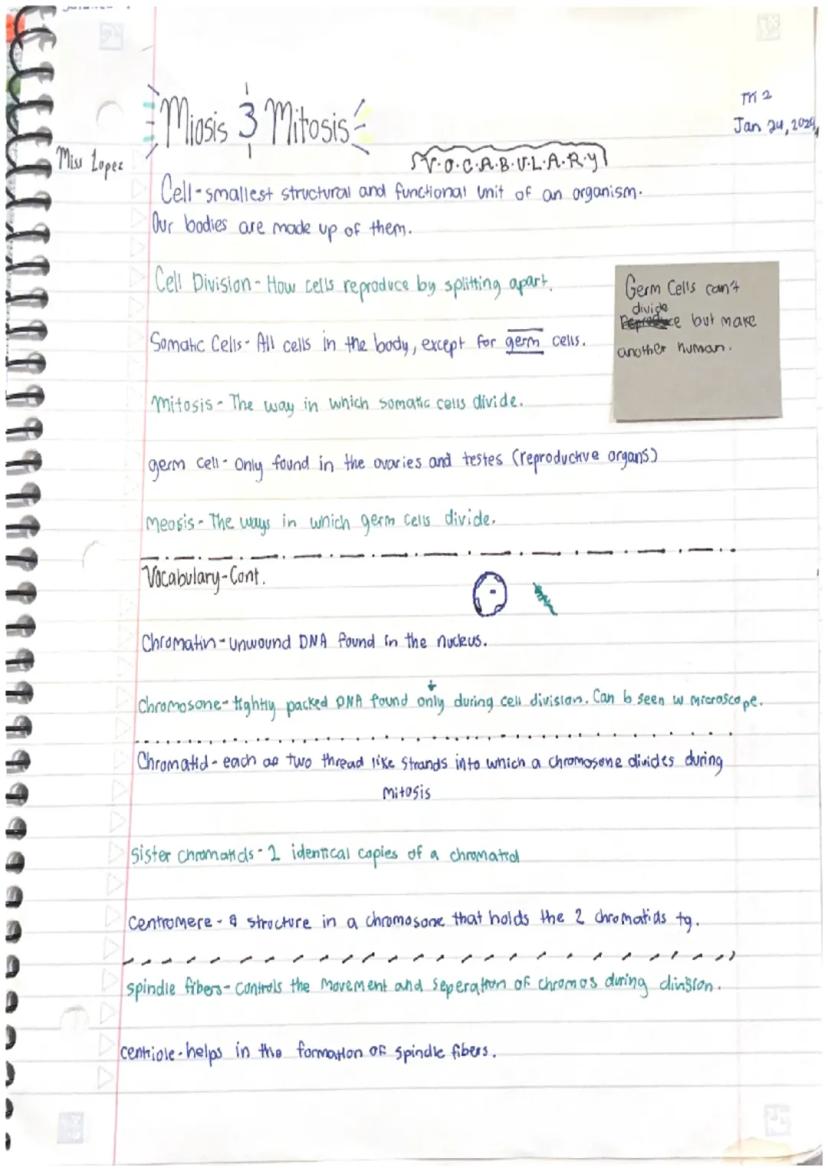 TM 2
Miosis & Mitosis
Jan 24, 2024
Miss Lopez
V.O.C.A.B.U.L.A.R.Y
Cell - smallest structural and functional unit of an organism.
Our bodies are made up of them.
Cell Division - How cells reproduce by splitting apart.
Somatic Cells - All cells in the body, except for germ cells.
Germ Cells can't
divide
Reproduce but make
another human.
Mitosis - The way in which somatic cells divide.
germ cell - Only found in the ovaries and testes (reproductive organs)
Meosis - The ways in which germ cells divide.
Vocabulary-Cont.
Chromatin - unwound DNA found in the nucleus.
Chromosone - tightly packed DNA found only during cell division. Can b seen w microscope.
Chromatid - each as two thread like strands into which a chromosone divides during
mitosis
Sister chromatids - 2 identical copies of a chromatid
Centromere - a structure in a chromosone that holds the 2 chromatids tg.
Spindle fibers - controls the movement and seperation of chromos during division.
centriole - helps in the formation of spindle fibers.